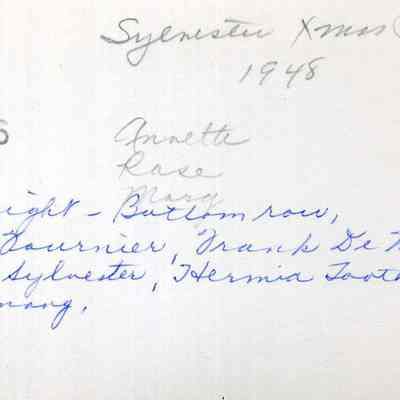 Sylvester Xmas
1948
Annette
Rose
Mary
ight - Bottom row,
Fournier, Frank De
Sylvester, Hermia Tooth